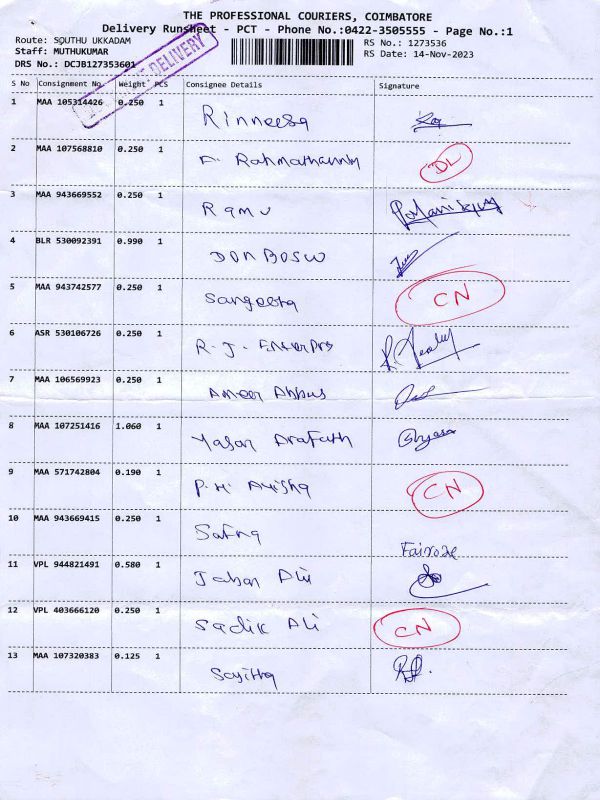 THE PROFESSIONAL COURIERS, COIMBATORE
Delivery Runsheet - PCT - Phone No.:0422-3505555 - Page No.:1
Route: SOUTHU UKKADAM
Staff: MUTHUKUMAR
DRS No.: DCJB127353601
RS No.: 1273536
RS Date: 14-Nov-2023
DELIVERY
S No Consignment No. Weight PCS Consignee Details Signature
1 MAA 105314426 0.250 1 Rinneesa
2 MAA 107568810 0.250 1 A. DL
3 MAA 943669552 0.250 1 Ramu
4 BLR 530092391 0.990 1 DON BOSCO
5 MAA 943742577 0.250 1 Sangeetha CN
6 ASR 530106726 0.250 1 R. J.
7 MAA 106569923 0.250 1 Ameer Abbus
8 MAA 107251416 1.060 1 Yasar Arafath
9 MAA 571742804 0.190 1 P.H. Ayisha CN
10 MAA 943669415 0.250 1 Safna Fairose
11 VPL 944821491 0.580 1 Jabar Ali
12 VPL 403666120 0.250 1 Sadik Ali CN
13 MAA 107320383 0.125 1 Sajitha